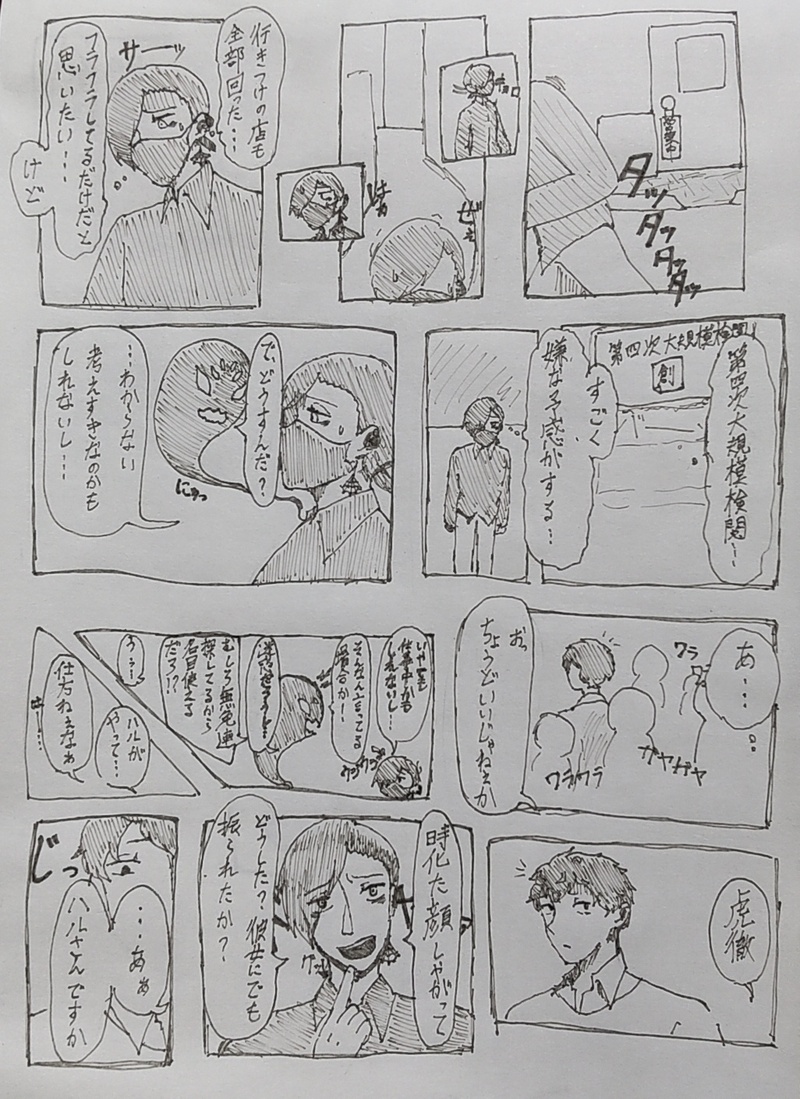 営業中
タッ
タッ
タッ
タッ
ぜぇ
はぁ
行きつけの店も
全部回った…
サーッ
フラフラしてるだけだと
思いたい…
けど
第四次大規模検問
創
第四次大規模検問…
すごく
嫌な予感がする…
で、どうすんだ?
にゅっ
…わからない
考えすぎなのかも
しれないし…
あ…
ワラ
ガヤガヤ
ワラワラ
おっ
ちょうどいいじゃねぇか
いやでも
仕事中かも
しれないし…
そんなん言ってる
場合か…
むしろ無発連
探してるから
名目使える
だろ!?
うぅ…
ハルが
やって…
仕方ねぇなぁ
虎徹
時化た顔しやがって
どうした?彼女にでも
振られたか?
じっ
…あぁ
ハルさんですか